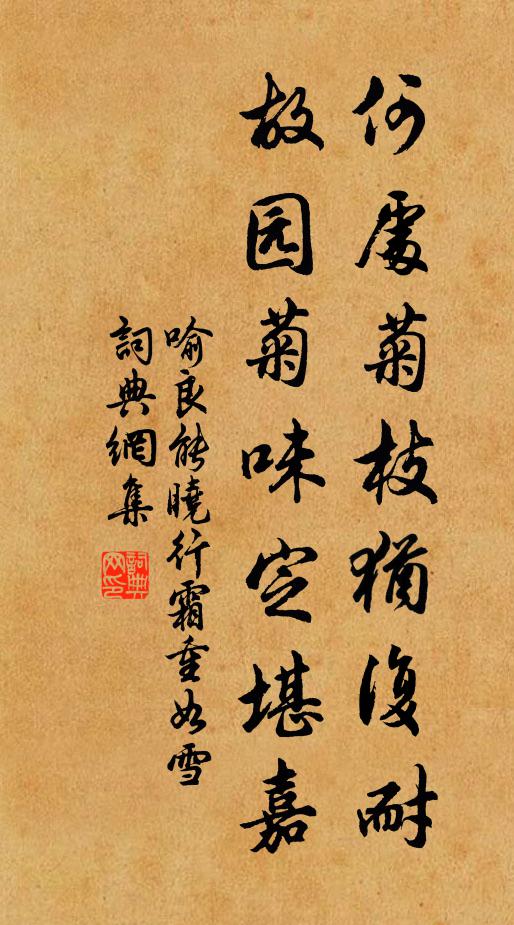 何處菊枝猶復耐
故园菊味定堪嘉
喻良能曉行霜重如雪
詞典網集
詞典网印